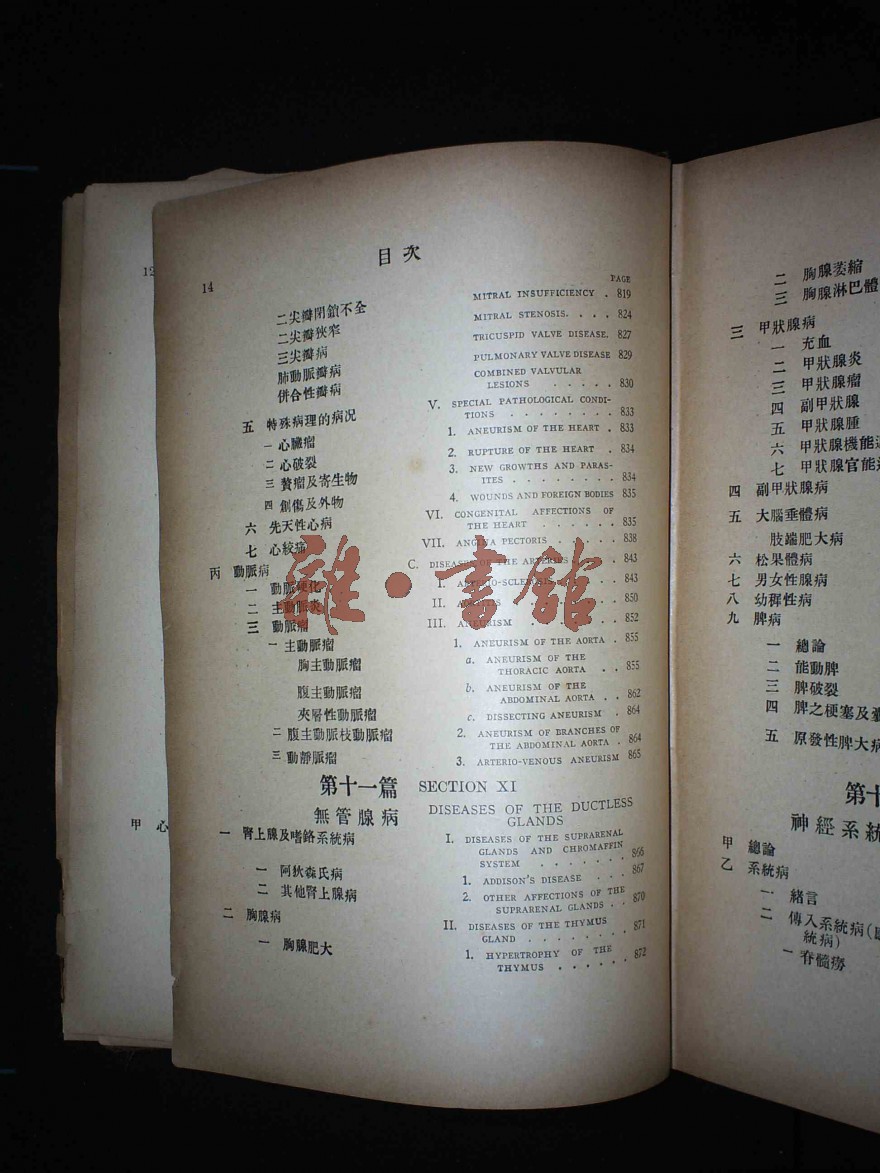 12
目次
14
PAGE
二尖瓣閉鎖不全 MITRAL INSUFFICIENCY . 819
二尖瓣狹窄 MITRAL STENOSIS. . . . 824
三尖瓣病 TRICUSPID VALVE DISEASE. 827
肺動脈瓣病 PULMONARY VALVE DISEASE 829
併合性瓣病 COMBINED VALVULAR
LESIONS . . . . . 830
五 特殊病理的病況 V. SPECIAL PATHOLOGICAL CONDI-
TIONS . . . . . . . . 833
一 心臟瘤 1. ANEURISM OF THE HEART . 833
二 心破裂 2. RUPTURE OF THE HEART . 834
三 贅瘤及寄生物 3. NEW GROWTHS AND PARAS-
ITES . . . . . . . . 834
四 創傷及外物 4. WOUNDS AND FOREIGN BODIES 835
六 先天性心病 VI. CONGENITAL AFFECTIONS OF
THE HEART . . . . . . 835
七 心絞痛 VII. ANGINA PECTORIS . . . . . 838
丙 動脈病 C. DISEASES OF THE ARTERIES . . . 843
一 動脈硬化 I. ARTERIO-SCLEROSIS . . . . 843
二 主動脈炎 II. . . . . 850
三 動脈瘤 III. ANEURISM . . . . . . . 852
一 主動脈瘤 1. ANEURISM OF THE AORTA . 855
胸主動脈瘤 a. ANEURISM OF THE
THORACIC AORTA . . 855
腹主動脈瘤 b. ANEURISM OF THE
ABDOMINAL AORTA . . 862
夾層性動脈瘤 c. DISSECTING ANEURISM . 864
二 腹主動脈枝動脈瘤 2. ANEURISM OF BRANCHES OF
THE ABDOMINAL AORTA . 864
三 動靜脈瘤 3. ARTERIO-VENOUS ANEURISM 865
第十一篇 SECTION XI
無管腺病 DISEASES OF THE DUCTLESS
GLANDS
一 腎上腺及嗜鉻系統病 I. DISEASES OF THE SUPRARENAL
GLANDS AND CHROMAFFIN
SYSTEM . . . . . . . 866
一 阿狄森氏病 1. ADDISON'S DISEASE . . . 867
二 其他腎上腺病 2. OTHER AFFECTIONS OF THE
SUPRARENAL GLANDS . . 870
二 胸腺病 II. DISEASES OF THE THYMUS
GLAND . . . . . . . . 871
一 胸腺肥大 1. HYPERTROPHY OF THE
THYMUS . . . . . . 872
甲 心
雜·書館
二 胸腺萎縮
三 胸腺淋巴體
三 甲狀腺病
一 充血
二 甲狀腺炎
三 甲狀腺瘤
四 副甲狀腺
五 甲狀腺腫
六 甲狀腺機能
七 甲狀腺官能
四 副甲狀腺病
五 大腦垂體病
肢端肥大病
六 松果體病
七 男女性腺病
八 幼稺性病
九 脾病
一 總論
二 能動脾
三 脾破裂
四 脾之梗塞及
五 原發性脾大病
第十
神經系統
甲 總論
乙 系統病
一 緒言
二 傳入系統病(
統病)
一 脊髓癆